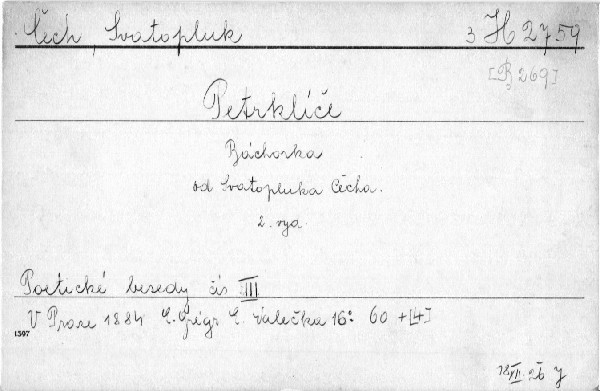 Čech, Svatopluk 3 H 2759
[B 269]
Petrklíče
Báchorka
od Svatopluka Čecha.
2. vyd.
Poetické besedy čís III
V Praze 1884 E. Grégr E. Valečka 16° 60 + [4]
1397